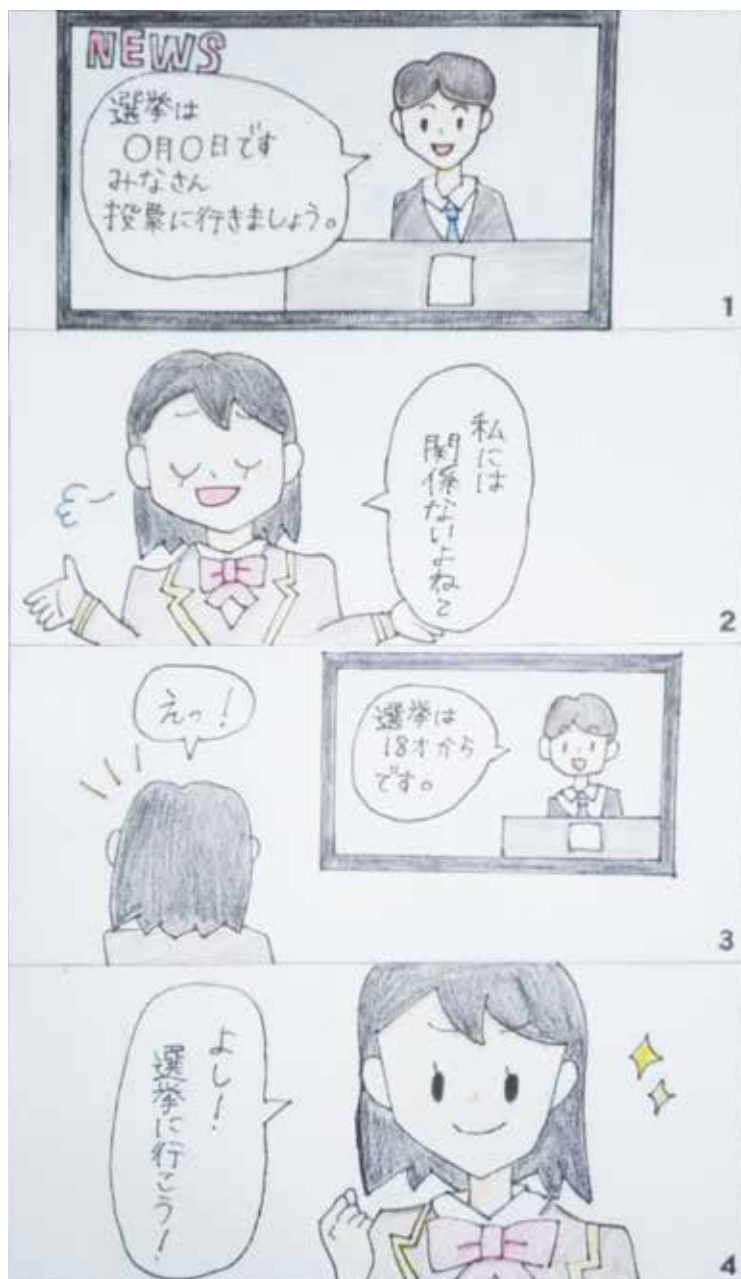 NEWS
選挙は
〇月〇日です
みなさん
投票に行きましょう。
1
私には
関係ないよね～
2
えっ！
選挙は
18才から
です。
3
よし！
選挙に行こう！
4